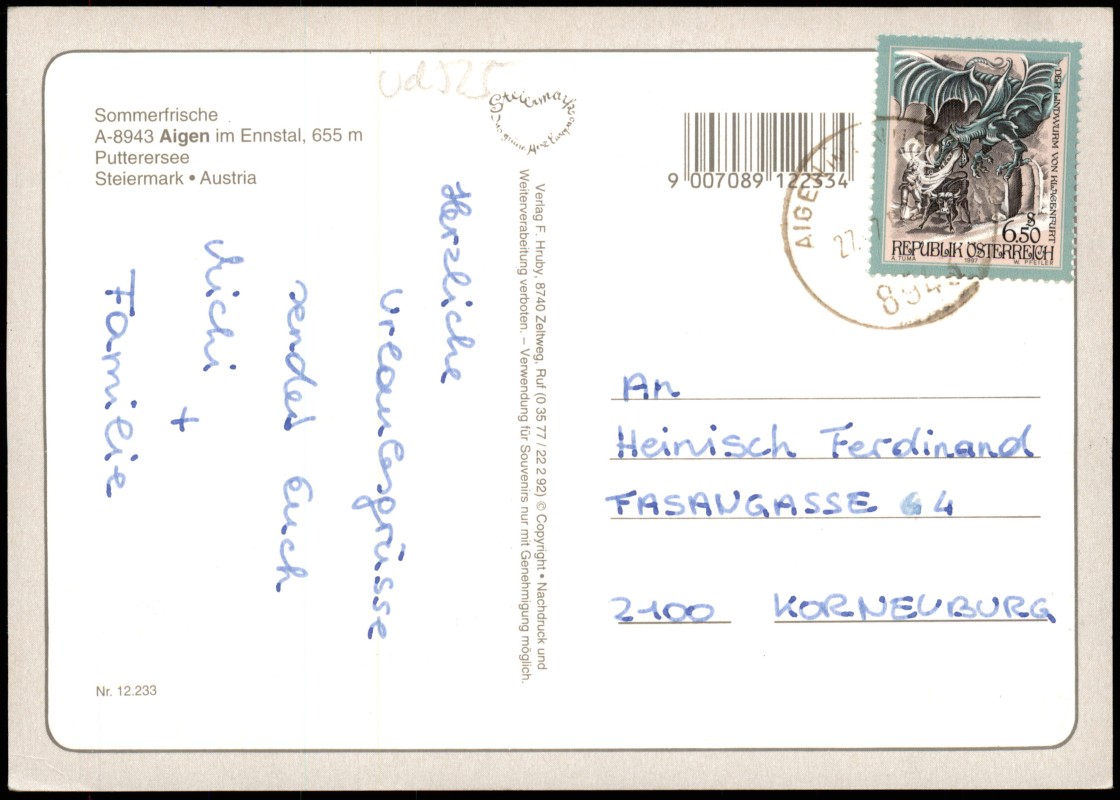 Sommerfrische
A-8943 Aigen im Ennstal, 655 m
Putterersee
Steiermark • Austria
Herzliche
Urlaubsgrüsse
sendet Euch
Michi
+
Familie
Nr. 12.233
Verlag F. Hruby, 8740 Zeltweg, Ruf (0 35 77 / 22 2 92) © Copyright • Nachdruck und
Weiterverabeitung verboten. – Verwendung für Souvenirs nur mit Genehmigung möglich.
Steiermark
9 007089 122334
AIGEN
27.
DER LINDWURM VON KLAGENFURT
S
6.50
REPUBLIK ÖSTERREICH
A. TUMA 1997 W. PFEILER
An
Heinisch Ferdinand
FASANGASSE 4
2100 KORNEUBURG